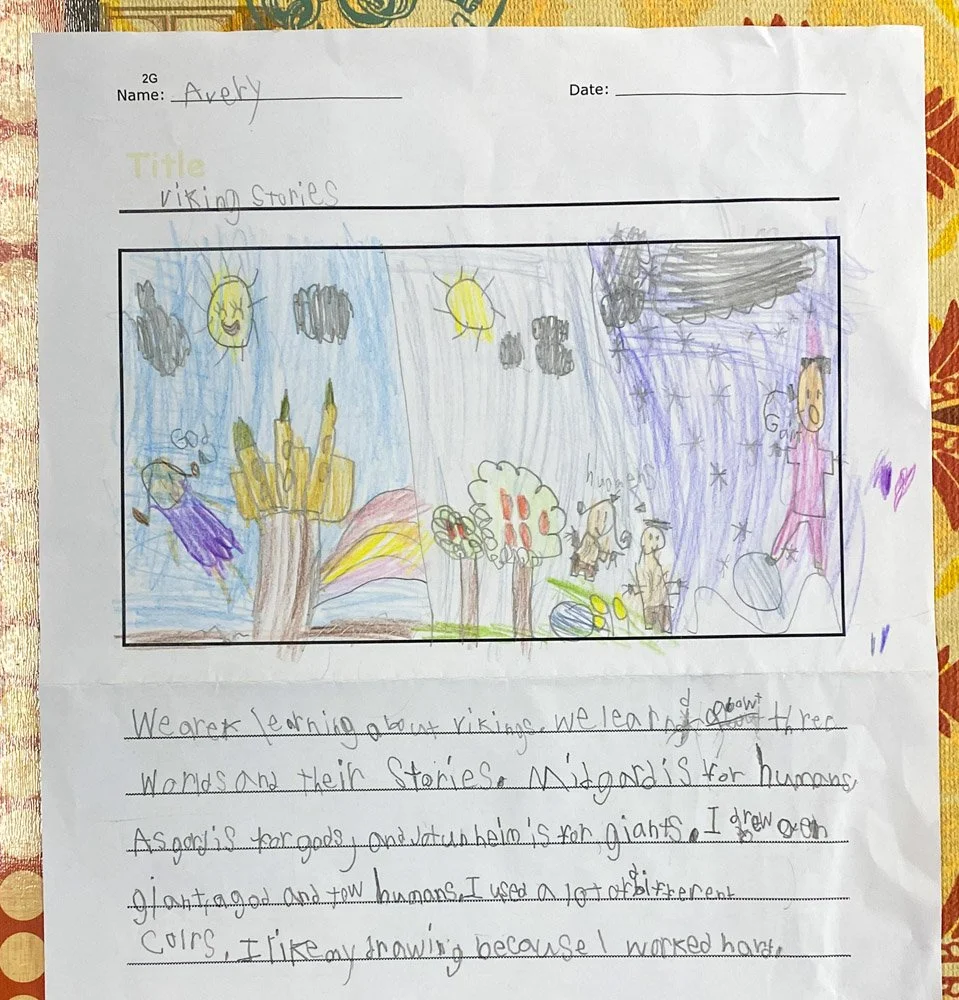 2G
Name: Avery Date:
Title
Viking Stories
God
humens
Gain
We are learning about vikings. we learnd about three
worlds and their Stories. Midgard is for humans,
Asgard is for gods, and Jotunheim is for giants. I drew aen
giant, a god and tow humans. I used a lot of different
Colrs. I like my drawing because I worked hard.